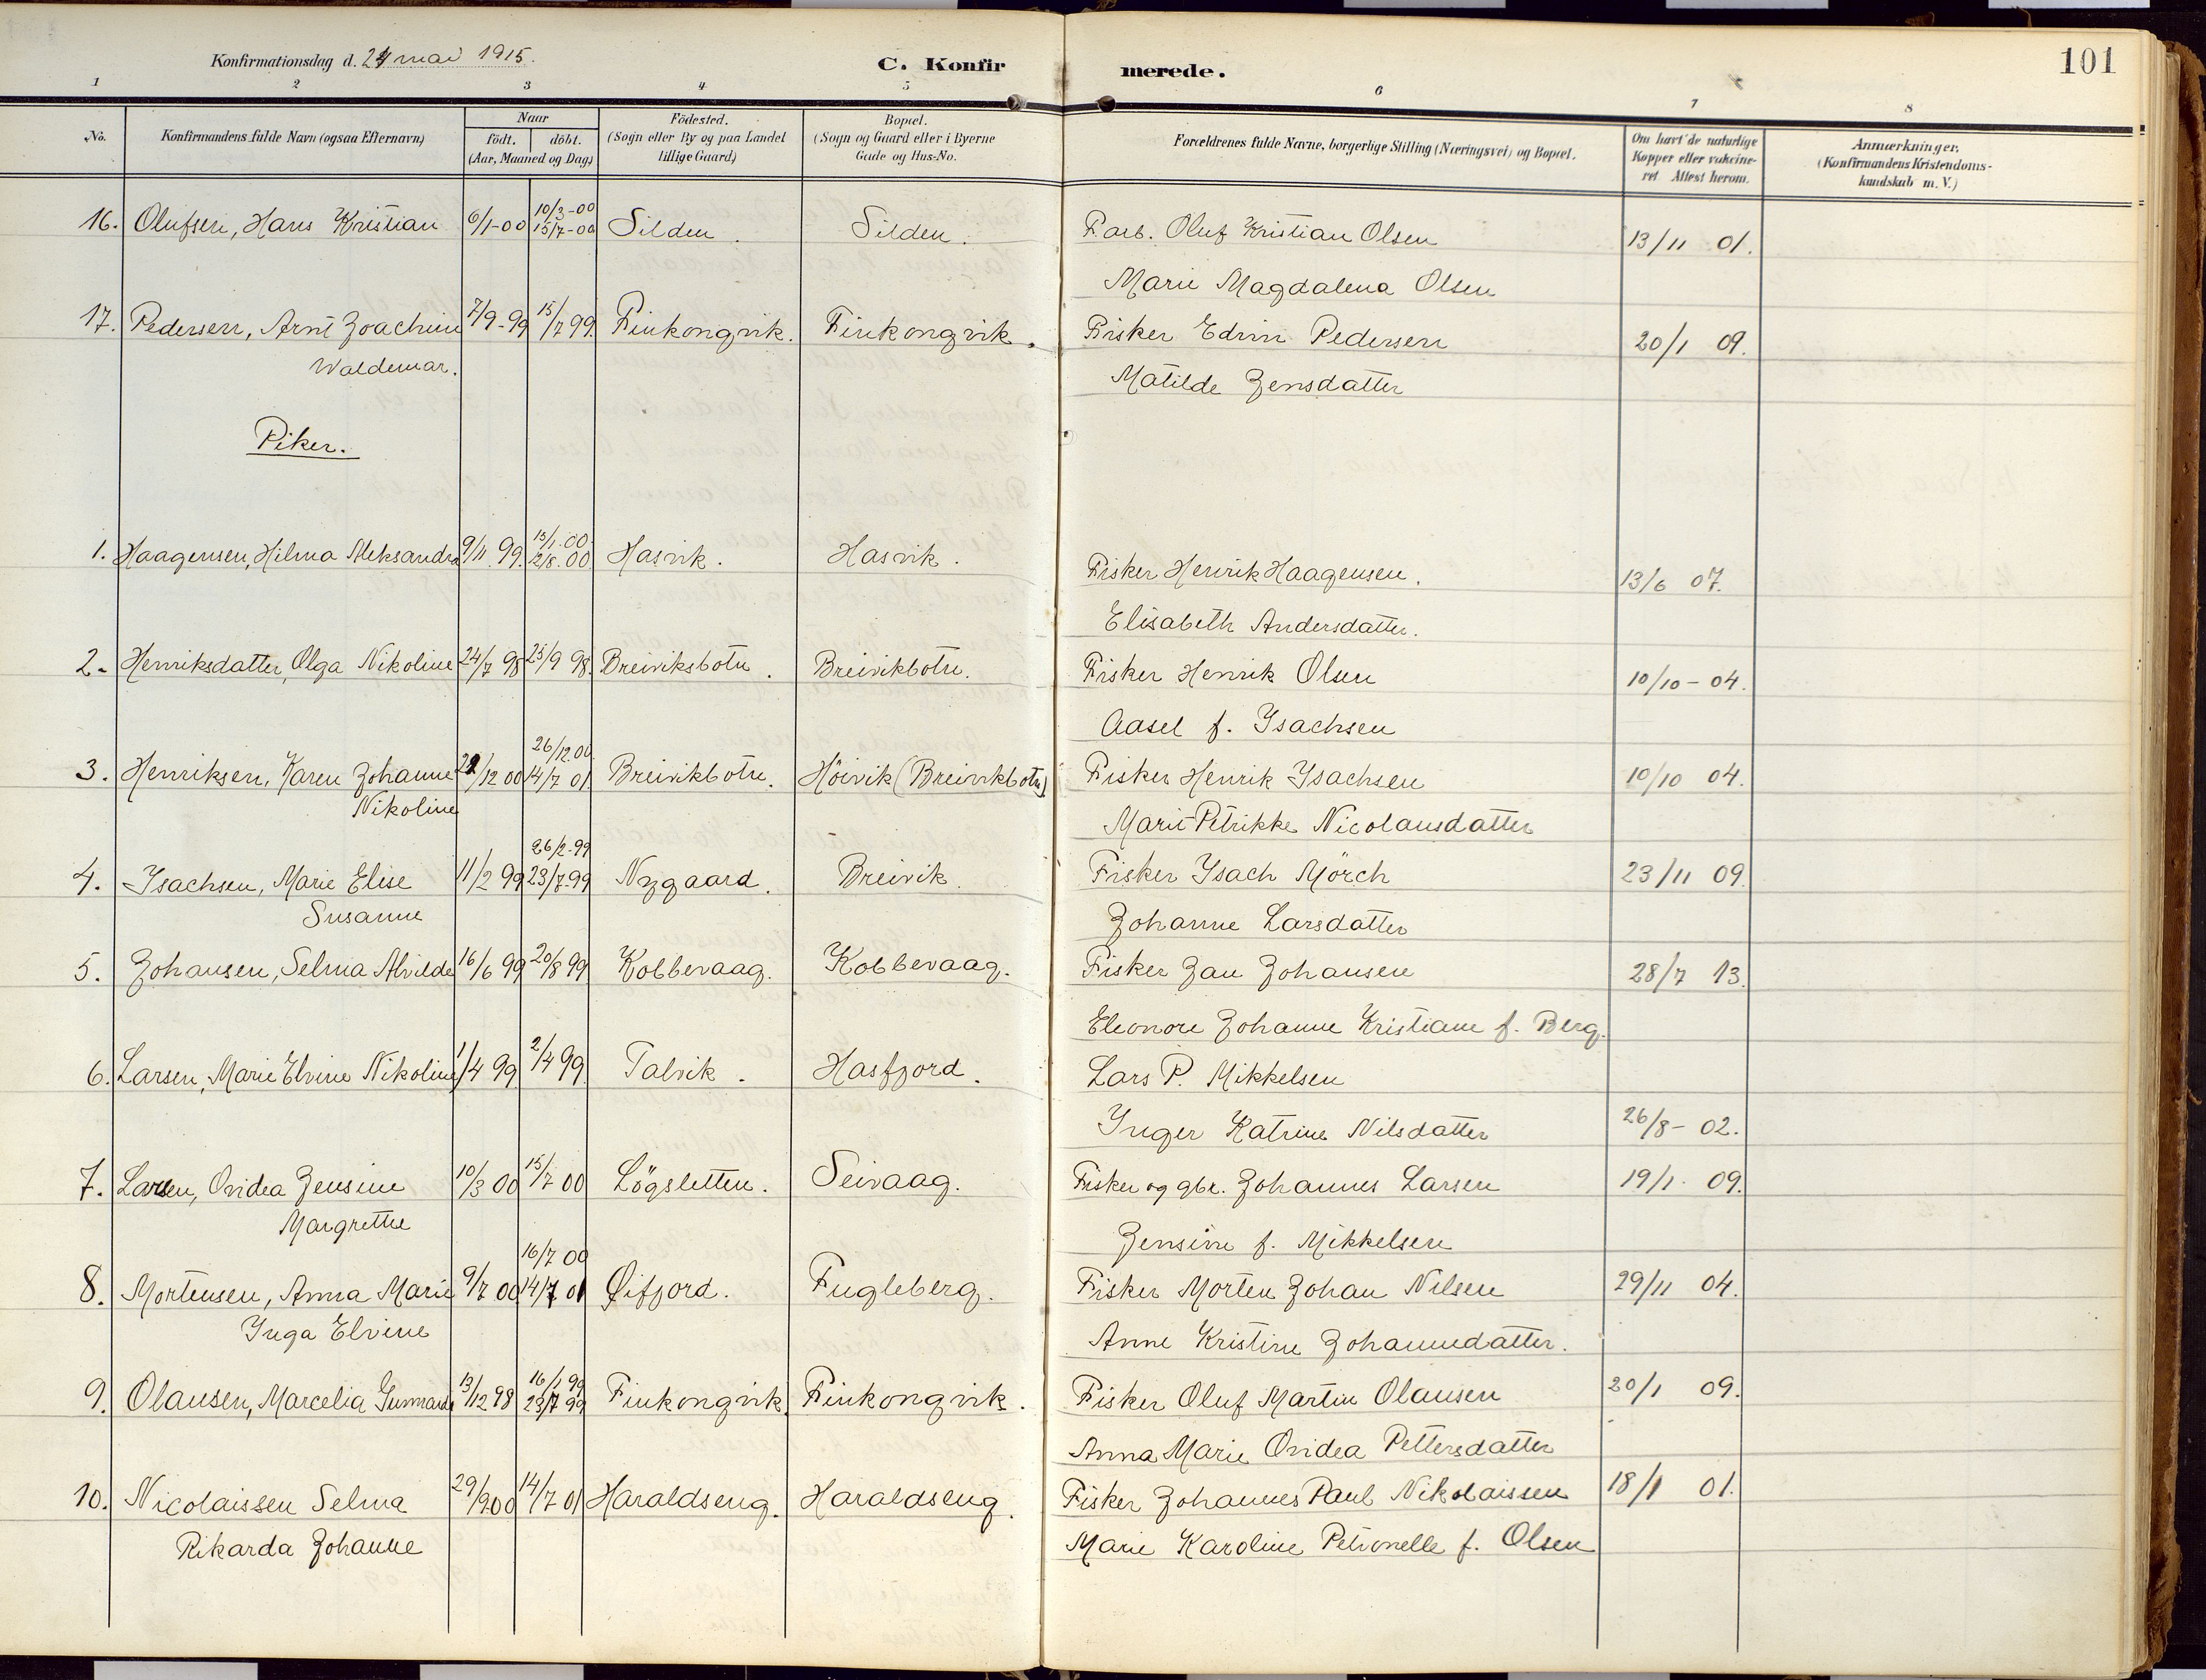 Konfirmationsdag d. 24 mai 1915. C. Konfirmerede. 101
1 2 3 4 5 6 7 8
No. Konfirmandens fulde Navn (ogsaa Efternavn) Naar födt. döbt. (Aar, Maaned og Dag) Födested. (Sogn eller By og paa Landet tillige Gaard) Bopæl. (Sogn og Gaard eller i Byerne Gade og Hus-No. Forældrenes fulde Navne, borgerlige Stilling (Næringsvei) og Bopæl. Om havt de naturlige Kopper eller vakcineret. Attest herom. Anmærkninger. (Konfirmandens Kristendomskundskab m. V.)
10/3-00
16. Olufsen, Hans Kristian 6/1-00 15/7-00 Silden. Silden. F.arb. Oluf Kristian Olsen 13/11 01.
Marie Magdalena Olsen
17. Pedersen, Arnt Joachim 7/9-99 15/7 99. Finkongvik. Finkongvik. Fisker Edvin Pedersen 20/1 09.
Waldemar. Matilde Jensdatter
Piker.
15/1.00.
1. Haagensen, Hilma Aleksandra 9/11.99. 2/8.00 Hasvik. Hasvik. Fisker Henrik Haagensen. 13/6 07.
Elisabeth Andersdatter.
2. Henriksdatter, Olga Nikoline 24/7 98 25/9 98. Breiviksbotn. Breivikbotn. Fisker Henrik Olsen 10/10-04.
Aasel f. Isachsen
26/12.00.
3. Henriksen, Karen Johanne 22/12 00 14/7 01. Breivikbotn. Höivik (Breivikbotn) Fisker Henrik Isachsen 10/10 04.
Nikoline Marit Petrikke Nicolausdatter
26/2-99
4. Isachsen, Marie Elise 11/2 99 23/7-99 Nygaard. Breivik. Fisker Isach Mörch 23/11 09.
Susanne Johanne Larsdatter
5. Johansen, Selma Alvilde 16/6 99 20/8 99. Kobbevaag. Kobbevaag. Fisker Jan Johansen 28/7 13.
Eleonore Johanne Kristiane f. Berg.
6. Larsen, Marie Elvine Nikoline 1/4 99 2/4 99. Talvik. Hasfjord. Lars P. Mikkelsen
Inger Katrine Nilsdatter 26/8-02.
7. Larsen, Ovidea Jensine 10/3 00 15/7 00 Lögsletten. Seivaag. Fisker og gbr. Johannes Larsen 19/1. 09.
Margrethe Jensine f. Mikkelsen
16/7 00
8. Mortensen, Anna Marie 9/7 00 14/7 01 Øifjord. Fugleberg. Fisker Morten Johan Nilsen 29/11 04.
Inga Elvine Anne Kristine Johannedatter.
16/1 99
9. Olausen, Marcelia 13/12 98 23/7 99 Finkongvik. Finkongvik. Fisker Oluf Martin Olausen 20/1 09.
Anna Marie Ovidea Pettersdatter
10. Nicolaissen Selma 29/9 00 14/7 01 Haraldseng. Haraldseng. Fisker Johannes Paul Nikolaissen 18/1 01.
Rikarda Johanne Marie Karoline Petronelle f. Olsen